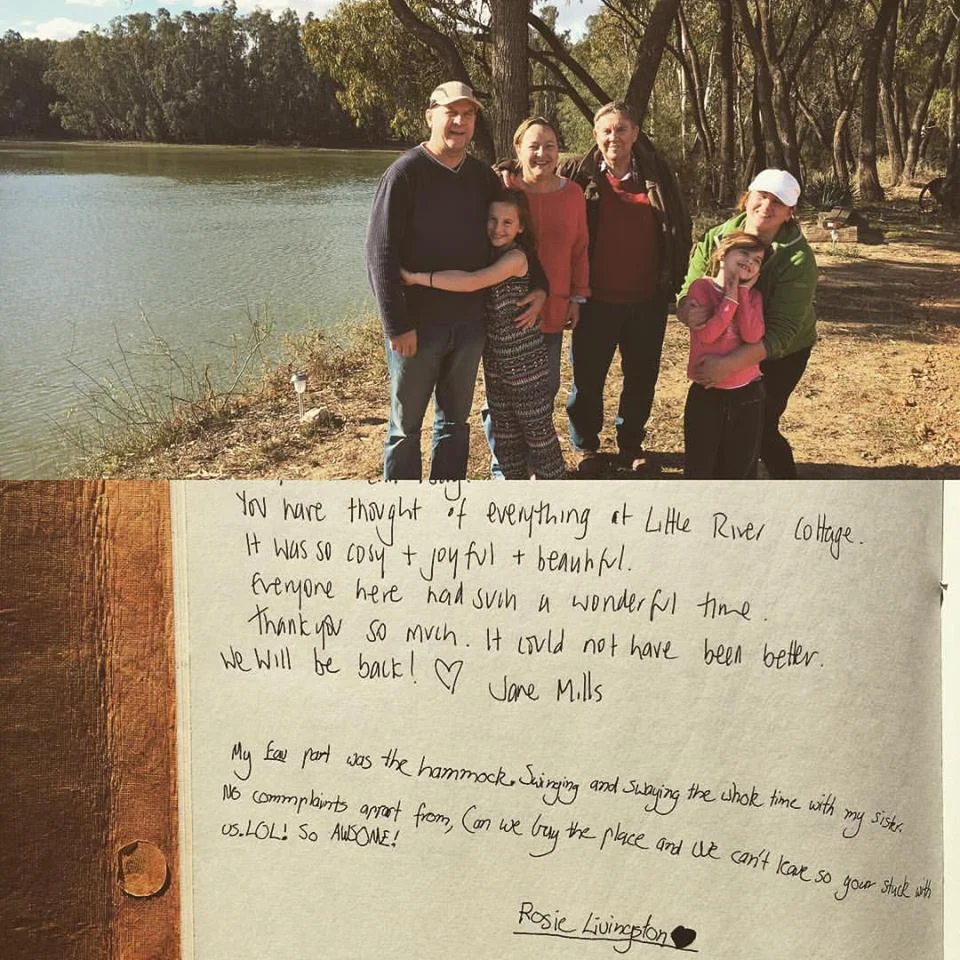 You have thought of everything at Little River Cottage.
It was so cosy + joyful + beautiful.
Everyone here had such a wonderful time.
Thankyou so much. It could not have been better.
We will be back! ♡ Jane Mills
My Fav part was the hammock. Swinging and swaying the whole time with my sister.
No commplaints apart from, Can we buy the place and We can't leave so your stuck with
us. LOL! So AWSOME!
Rosie Livingston ♥